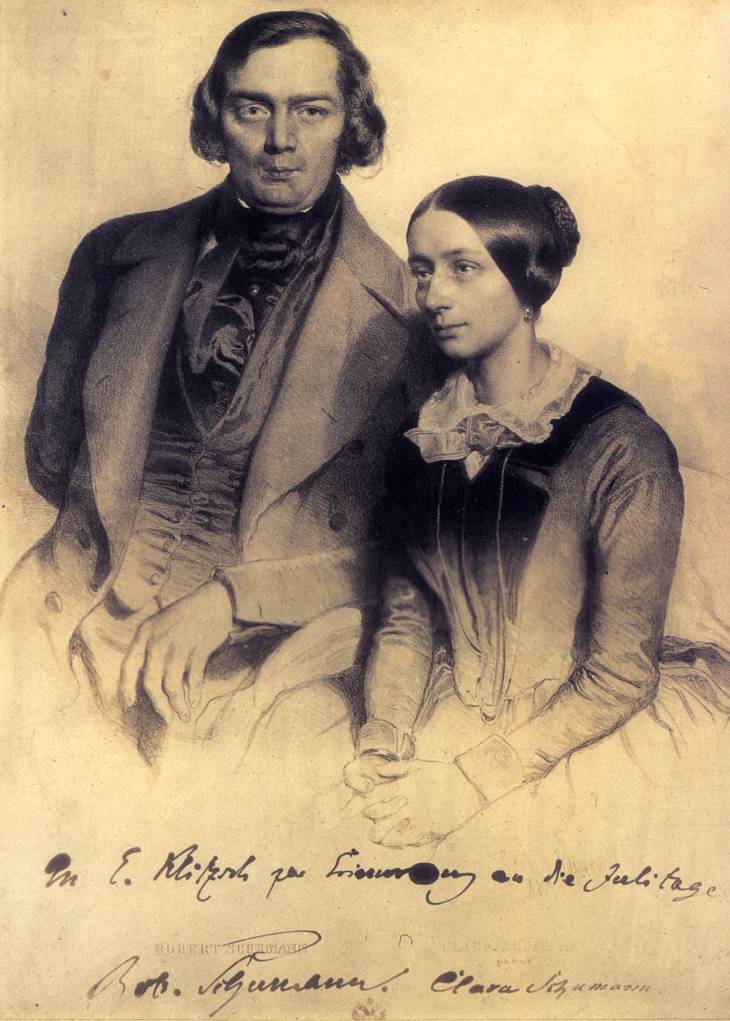 An E. Klitzsch zur Erinnerung an die Julitage
ROBERT SCHUMANN CLARA
Rob. Schumann. Clara Schumann